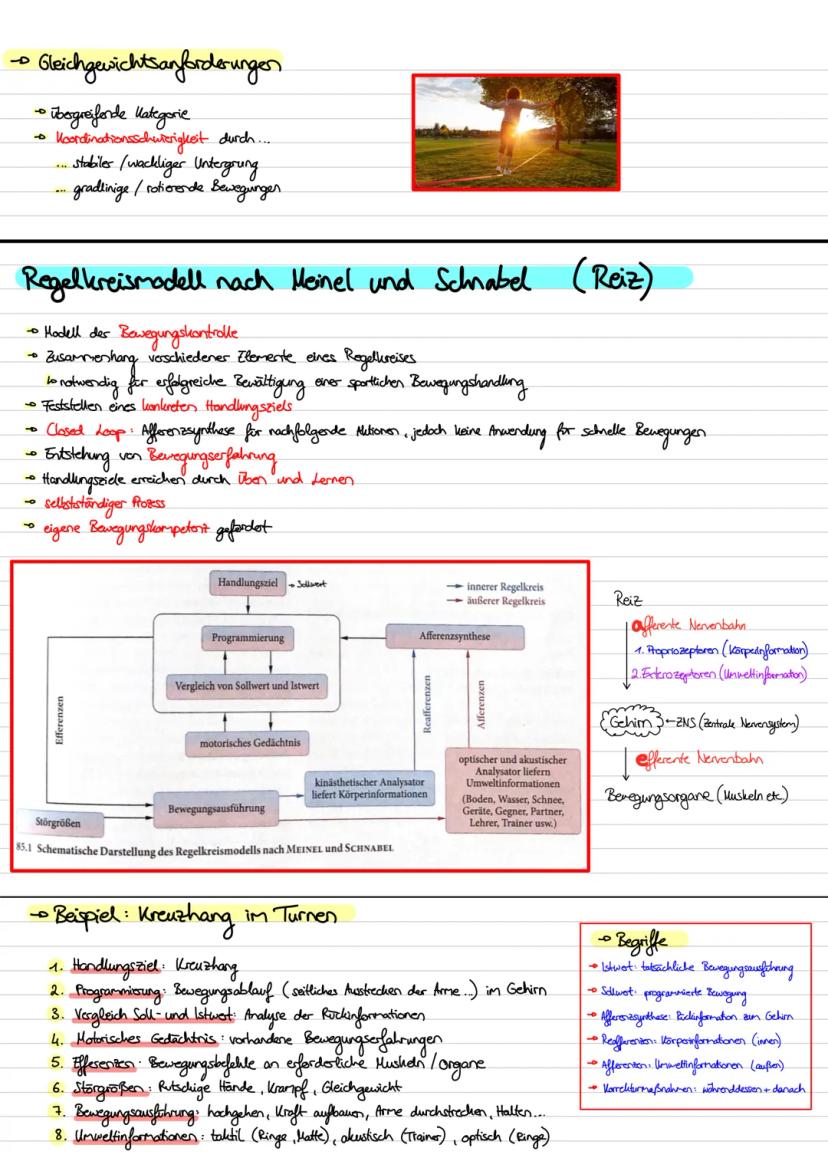 → Gleichgewichtsanforderungen
→ übergreifende Kategorie
→ Koordinationsschwierigkeit durch...
... stabiler / wackliger Untergrung
... gradlinige / rotierende Bewegungen
Regelkreismodell nach Meinel und Schnabel (Reiz)
→ Modell der Bewegungskontrolle
→ Zusammenhang verschiedener Elemente eines Regelkreises
↳ notwendig für erfolgreiche Bewältigung einer sportlichen Bewegungshandlung
→ Feststellen eines konkreten Handlungsziels
→ Closed Loop: Afferenzsynthese für nachfolgende Aktionen, jedoch keine Anwendung für schnelle Bewegungen
→ Entstehung von Bewegungserfahrung
→ Handlungsziele erreichen durch Üben und Lernen
→ selbstständiger Prozess
→ eigene Bewegungskompetenz gefördert
Handlungsziel → Sollwert
→ innerer Regelkreis
→ äußerer Regelkreis
Programmierung
Afferenzsynthese
Vergleich von Sollwert und Istwert
Efferenzen
Reafferenzen
Afferenzen
motorisches Gedächtnis
kinästhetischer Analysator
liefert Körperinformationen
optischer und akustischer
Analysator liefern
Umweltinformationen
(Boden, Wasser, Schnee,
Geräte, Gegner, Partner,
Lehrer, Trainer usw.)
Bewegungsausführung
Störgrößen
85.1 Schematische Darstellung des Regelkreismodells nach MEINEL und SCHNABEL
Reiz
afferente Nervenbahn
1. Propriozeptoren (Körperinformation)
2. Exterozeptoren (Umweltinformation)
Gehirn ← ZNS (Zentrale Nervensystem)
efferente Nervenbahn
Bewegungsorgane (Muskeln etc.)
→ Beispiel: Kreuzhang im Turnen
1. Handlungsziel: Kreuzhang
2. Programmierung: Bewegungsablauf (seitliches Ausstrecken der Arme...) im Gehirn
3. Vergleich Soll- und Istwert: Analyse der Rückinformationen
4. Motorisches Gedächtnis: vorhandene Bewegungserfahrungen
5. Efferenzen: Bewegungsbefehle an erforderliche Muskeln / Organe
6. Störgrößen: Rutschige Hände, Krampf, Gleichgewicht
7. Bewegungsausführung: hochgehen, Kraft aufbauen, Arme durchstrecken, Halten...
8. Umweltinformationen: taktil (Ringe, Matte), akustisch (Trainer), optisch (Ringe)
→ Begriffe
→ Istwert: tatsächliche Bewegungsausführung
→ Sollwert: programmierte Bewegung
→ Afferenzsynthese: Rückinformation zum Gehirn
→ Reafferenzen: Körperinformationen (innen)
→ Afferenzen: Umweltinformationen (außen)
→ Korrekturmaßnahmen: währenddessen + danach